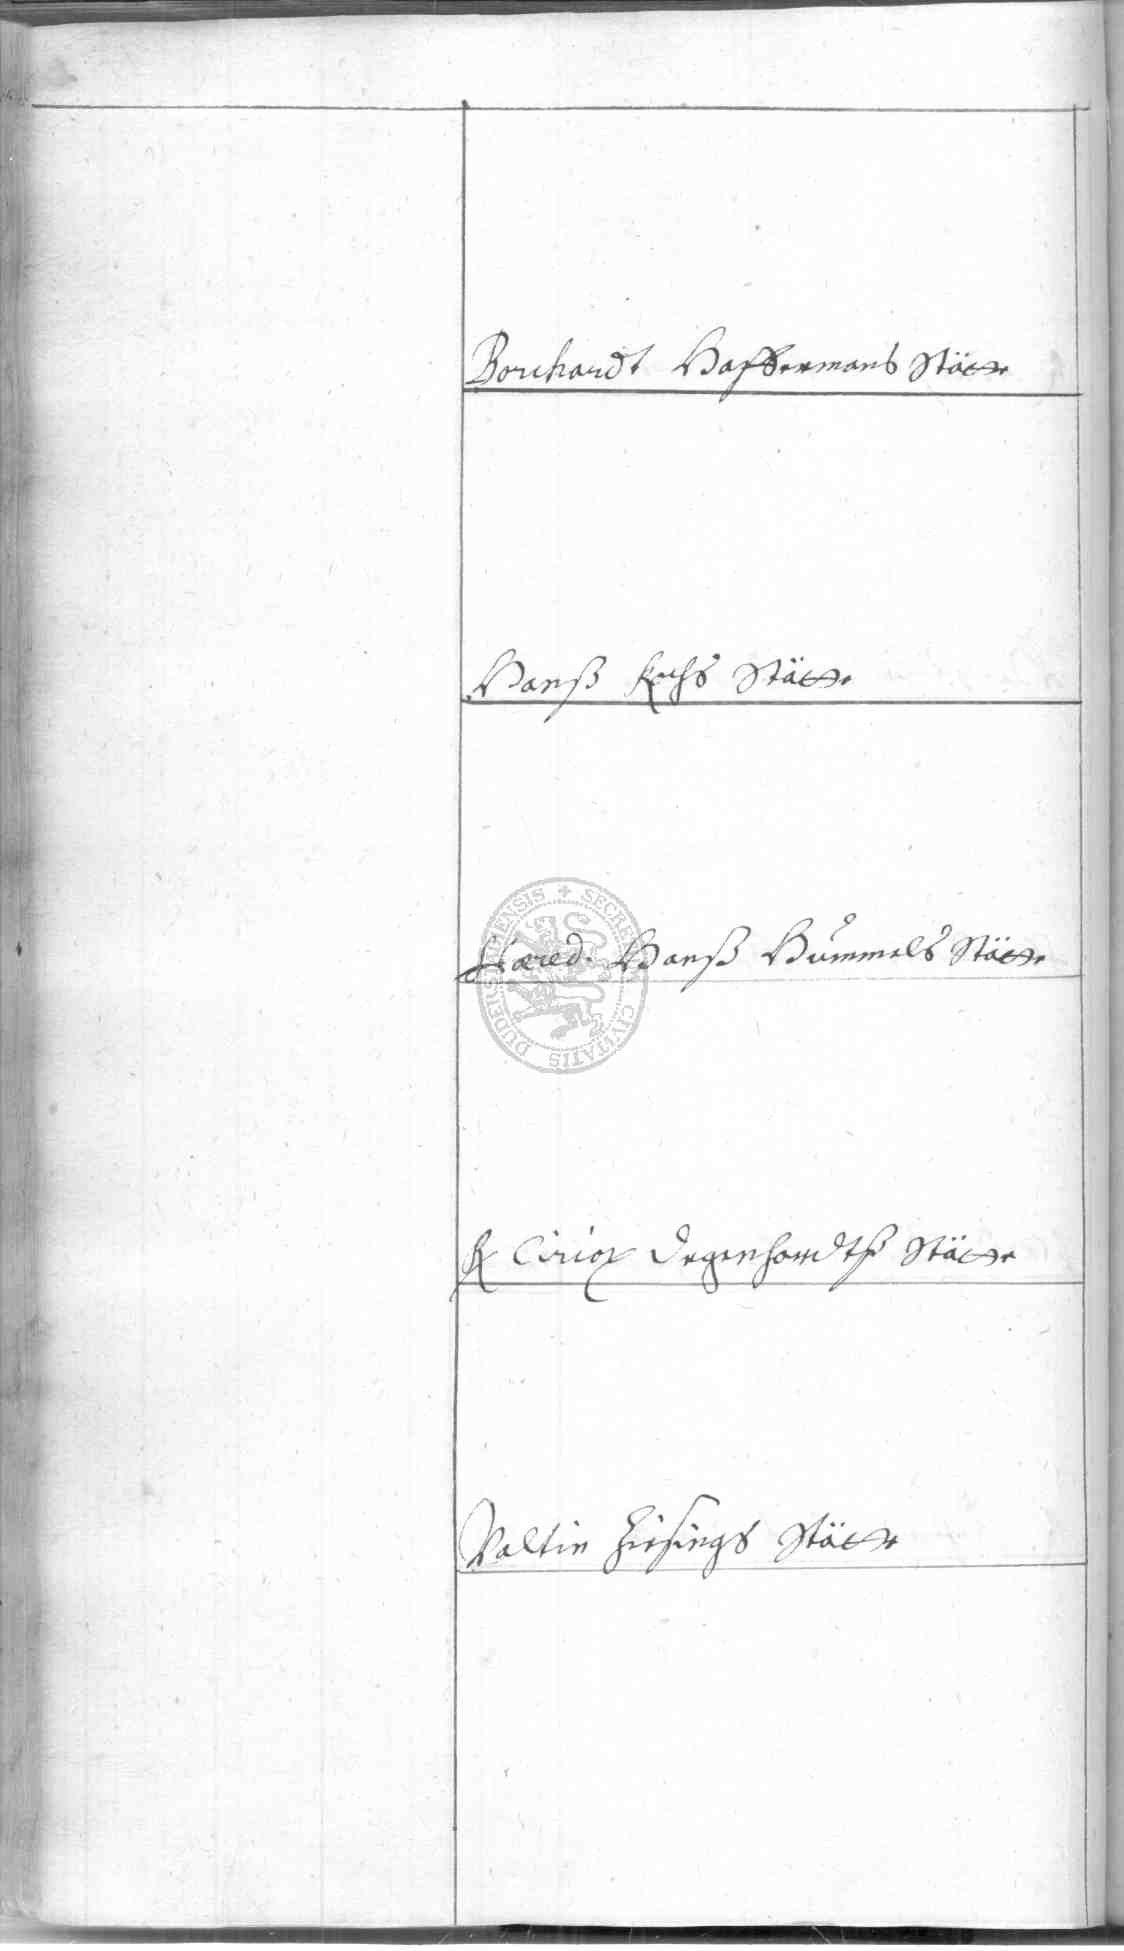 Borchardt Haffermans Stätte
Hanß Kochs Stätte
Hæred. Hanß Hummels Stätte
Ciriax Degenhardtß Stätte
Valtin Hiesings Stätte
SECRETUM CIVITATIS DUDERSTADENSIS